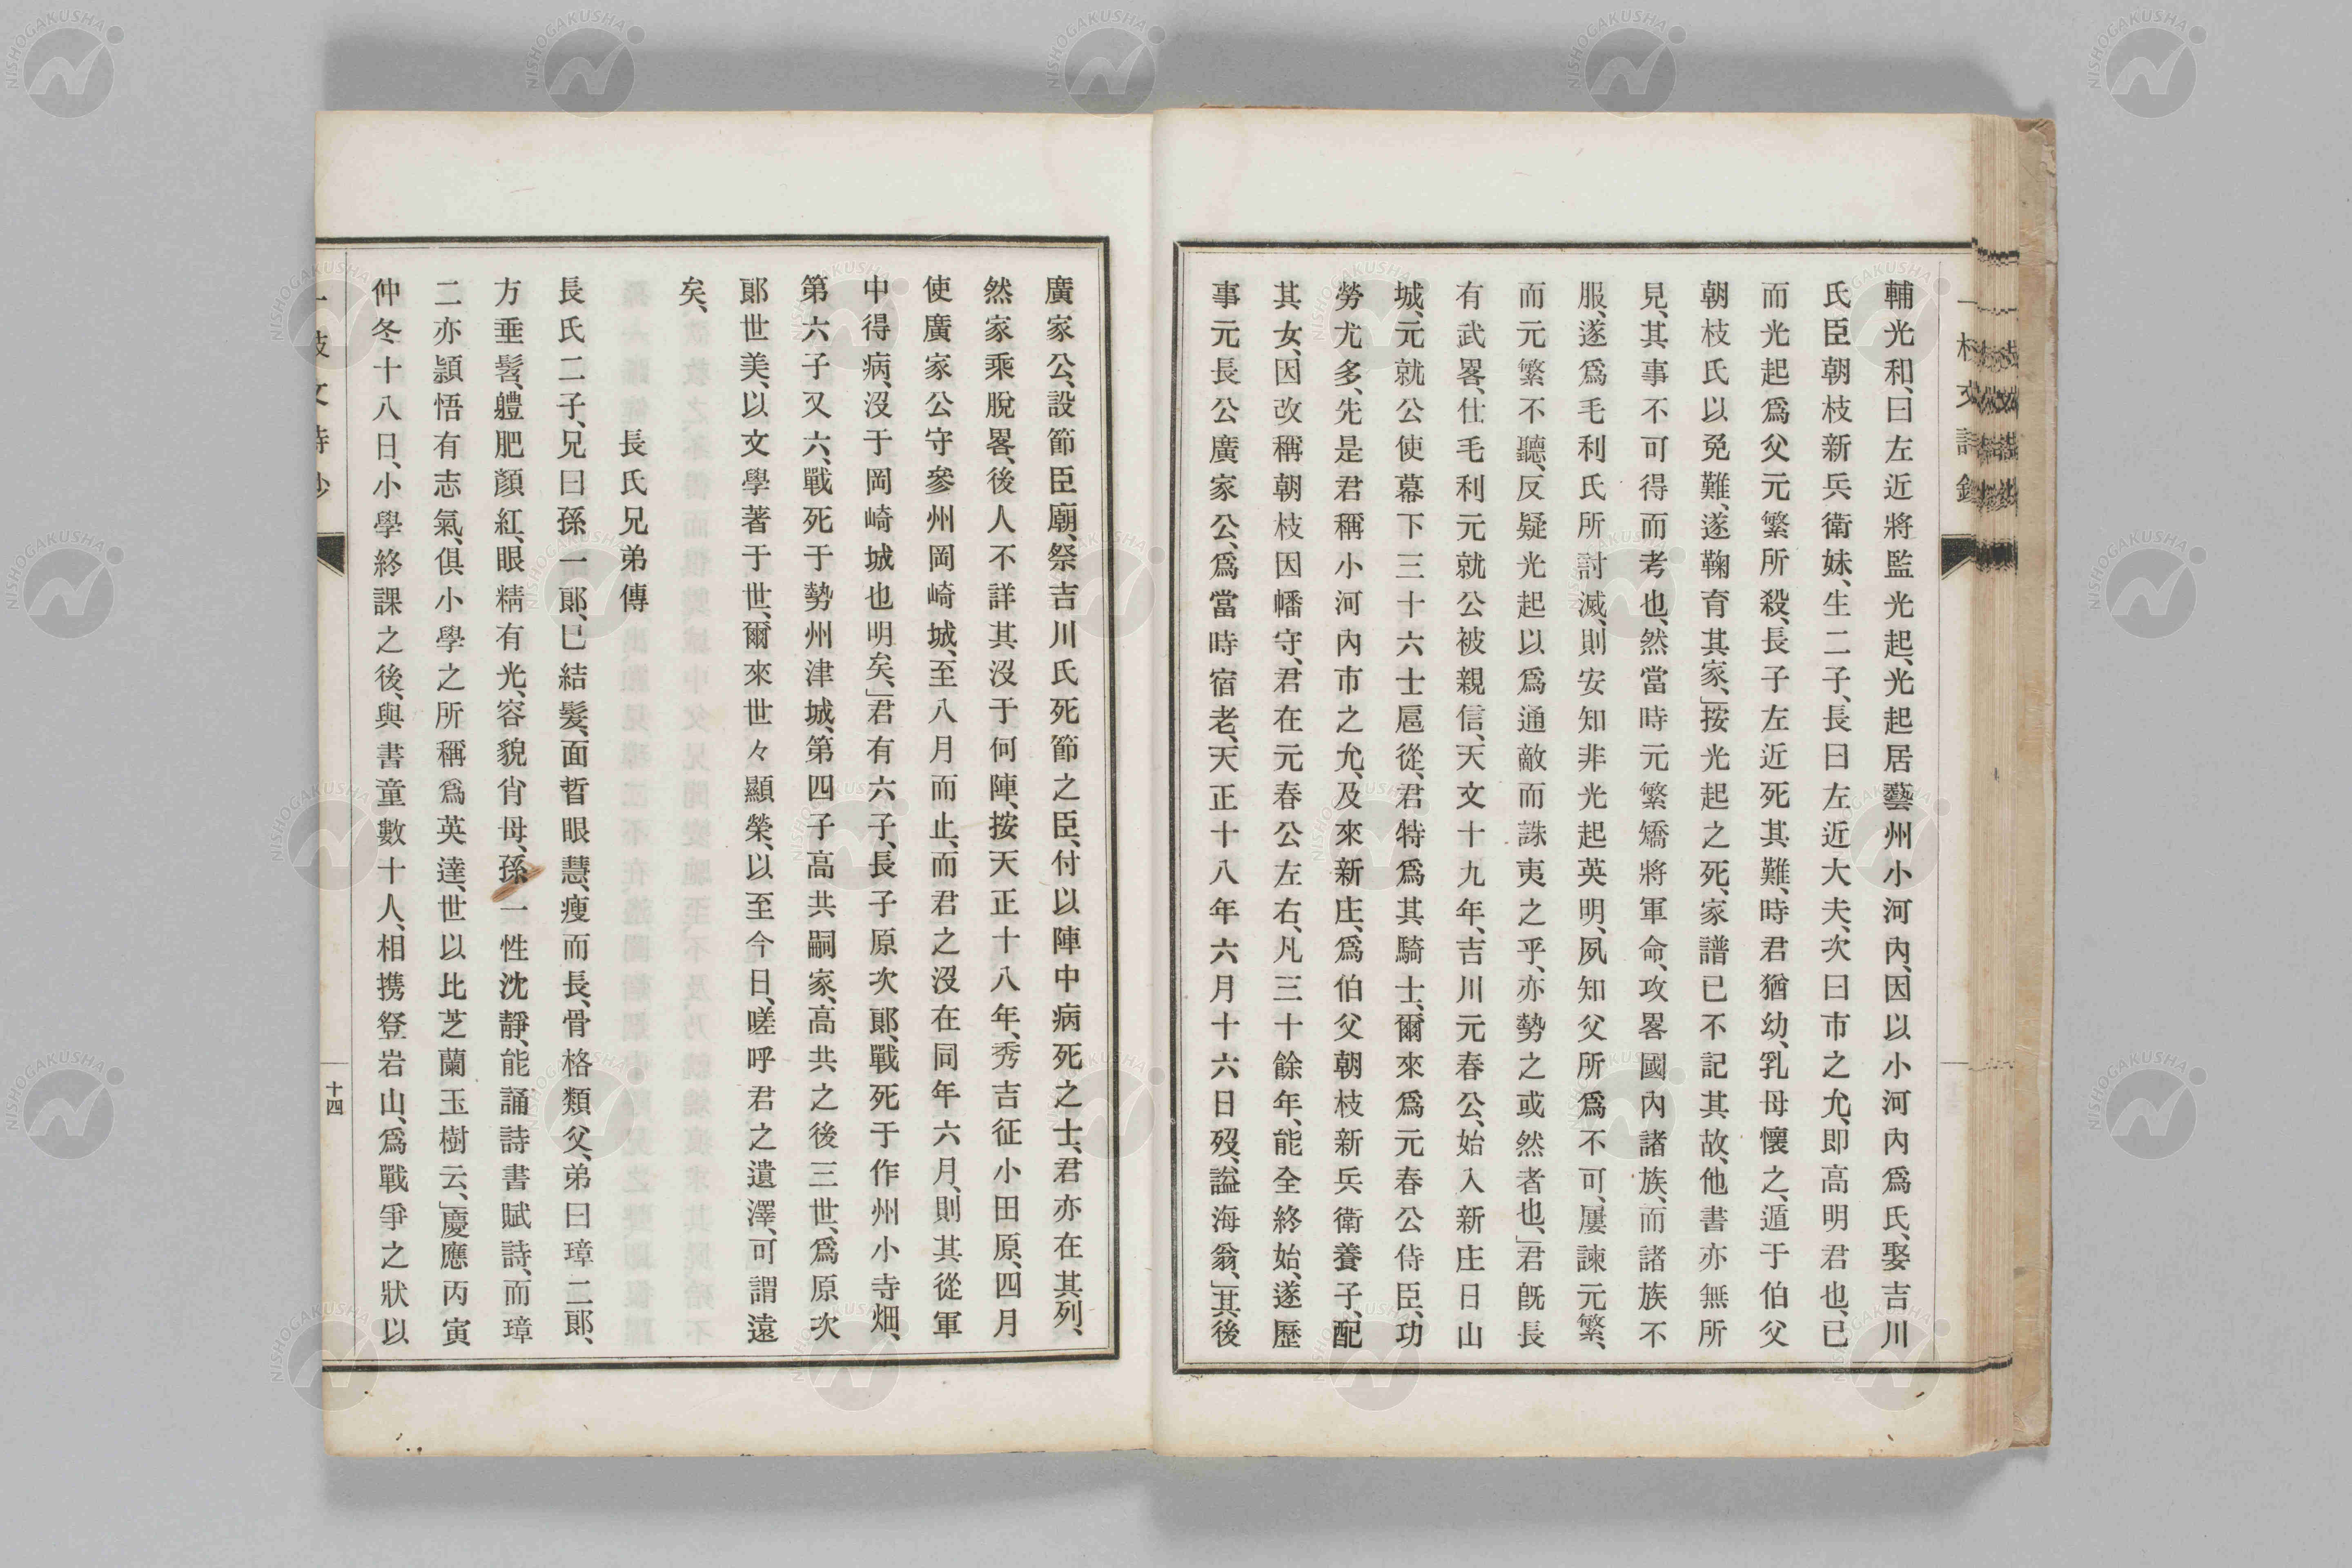 輔光和、曰左近將監光起、光起居藝州小河內、因以小河內爲氏、娶吉川
氏臣朝枝新兵衛妹、生二子、長曰左近大夫、次曰市之允、卽高明君也、已
而光起爲父元繁所殺、長子左近死其難、時君猶幼、乳母懷之、遁于伯父
朝枝氏以免難、遂鞠育其家、」按光起之死、家譜已不記其故、他書亦無所
見、其事不可得而考也、然當時元繁矯將軍命、攻畧國內諸族、而諸族不
服、遂爲毛利氏所討滅、則安知非光起英明、夙知父所爲不可、屢諫元繁、
而元繁不聽、反疑光起以爲通敵而誅夷之乎、亦勢之或然者也、」君旣長
有武畧、仕毛利元就公被親信、天文十九年、吉川元春公、始入新庄日山
城、元就公使幕下三十六士扈從、君特爲其騎士、爾來爲元春公侍臣、功
勞尤多、先是君稱小河內市之允、及來新庄、爲伯父朝枝新兵衛養子、配
其女、因改稱朝枝因幡守、君在元春公左右、凡三十餘年、能全終始、遂歷
事元長公廣家公、爲當時宿老、天正十八年六月十六日歿、謚海翁、」其後
廣家公、設節臣廟、祭吉川氏死節之臣、付以陣中病死之士、君亦在其列、
然家乘脫畧、後人不詳其沒于何陣、按天正十八年、秀吉征小田原、四月
使廣家公守參州岡崎城、至八月而止、而君之沒在同年六月、則其從軍
中得病、沒于岡崎城也明矣、」君有六子、長子原次郞、戰死于作州小寺畑、
第六子又六、戰死于勢州津城、第四子高共嗣家、高共之後三世、爲原次
郞世美、以文學著于世、爾來世々顯榮、以至今日、嗟呼君之遺澤、可謂遠
矣、
長氏兄弟傳
長氏二子、兄曰孫一郞、已結髮、面晳眼慧、瘦而長、骨格類父、弟曰璋二郞、
方垂髫、軆肥顏紅、眼精有光、容貌肖母、孫一性沈靜、能誦詩書賦詩、而璋
二亦穎悟有志氣、俱小學之所稱爲英達、世以比芝蘭玉樹云、」慶應丙寅
仲冬十八日、小學終課之後、與書童數十人、相携登岩山、爲戰爭之狀以
十四